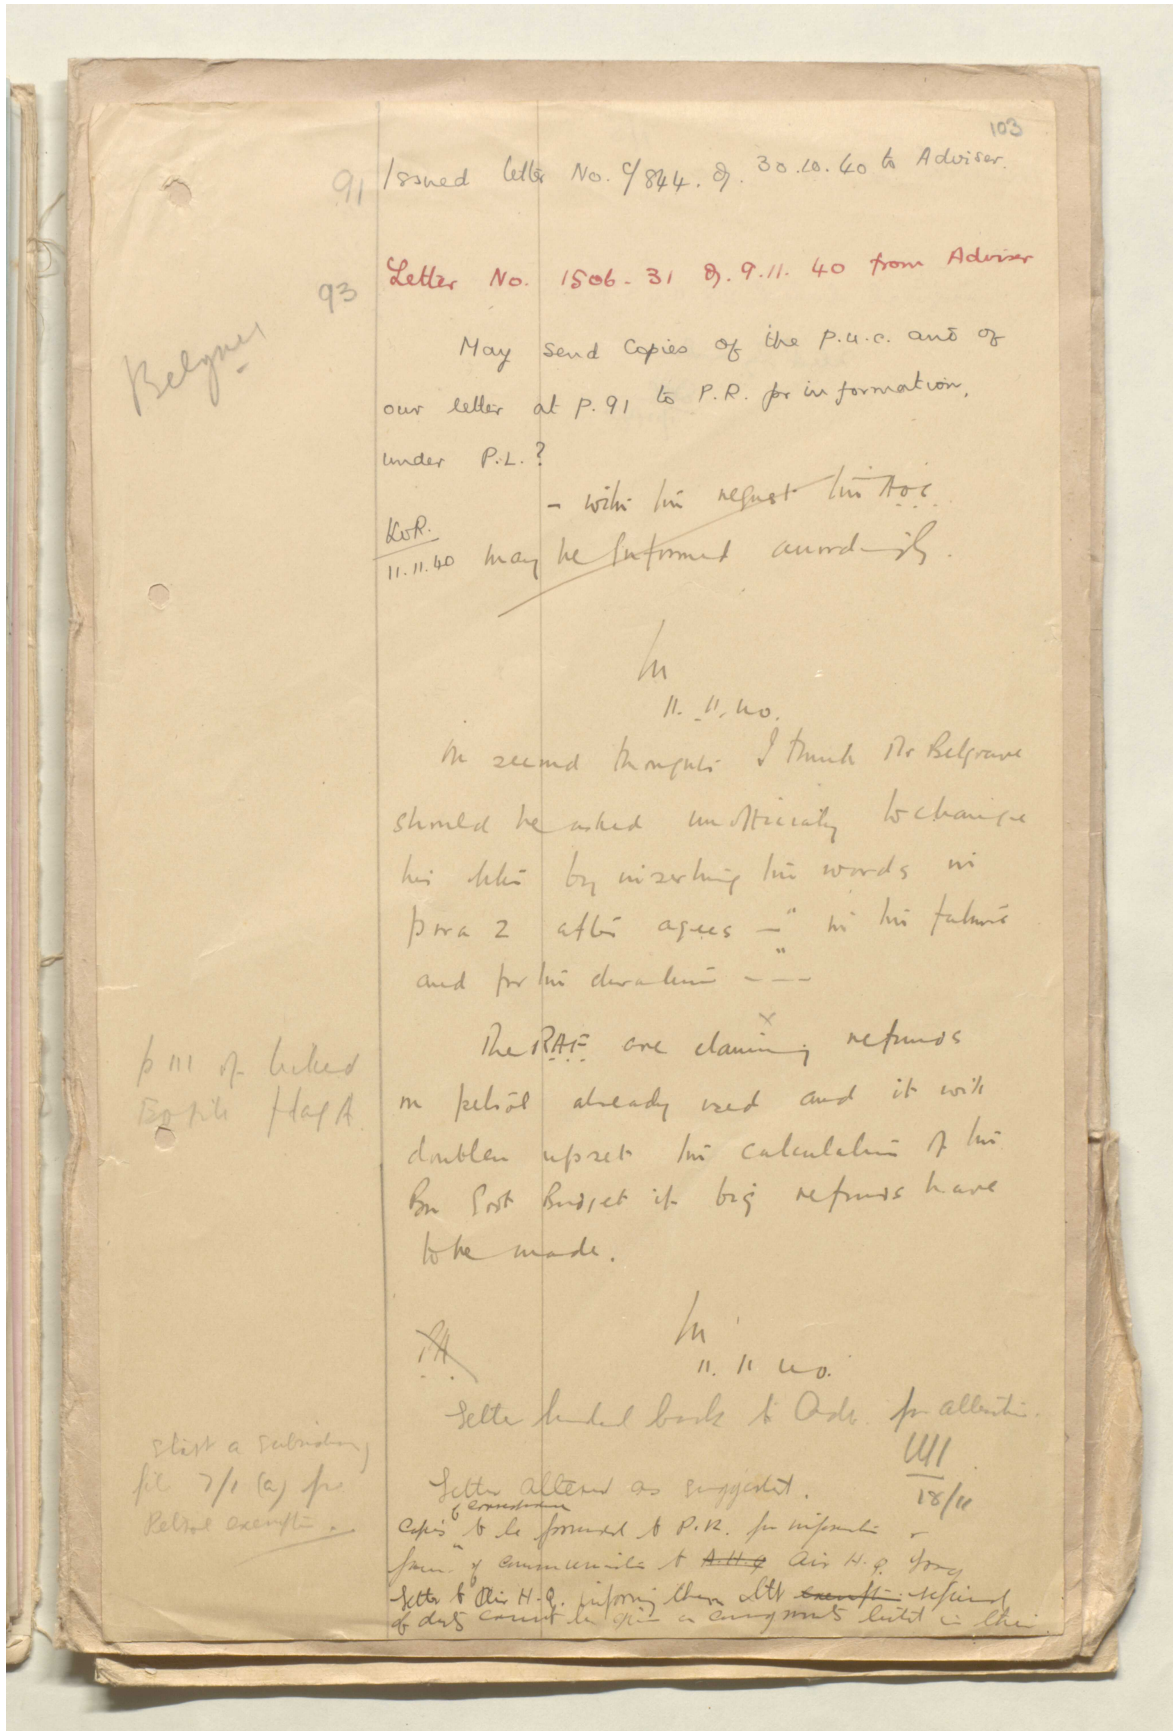 103
91 Issued letter No. C/844. of. 30.10.40 to Adviser.
93 Letter No. 1506-31 of. 9.11.40 from Adviser
May send copies of the P.U.C. and of
our letter at p.91 to P.R. for information,
under P.L.?
- with the request the A.O.C.
K.R.
11.11.40 may be informed accordingly.
11.11.40.
On second thoughts I think Mr Belgrave
should be asked unofficially to change
his letter by inserting the words in
para 2 after agrees - " in the future
and for the duration " - - -
The R.A.F. are claiming x refunds
p 111 of linked
on petrol already used and it will
file flag A.
doubtless upset the calculation of the
Bn Govt Budget if big refunds have
to be made.
11.11.40.
Letter handed back to Adv. for alteration.
Start a subsidiary
file 7/1 (a) for
Petrol exemption.
18/11
Letter altered as suggested.
Copies to be forwarded to P.R. for information &
of communication to A.H.Q Air H.Q. Iraq
Letter to Air H.Q. informing them that exemption refund
of duty cannot be given on consignments in their